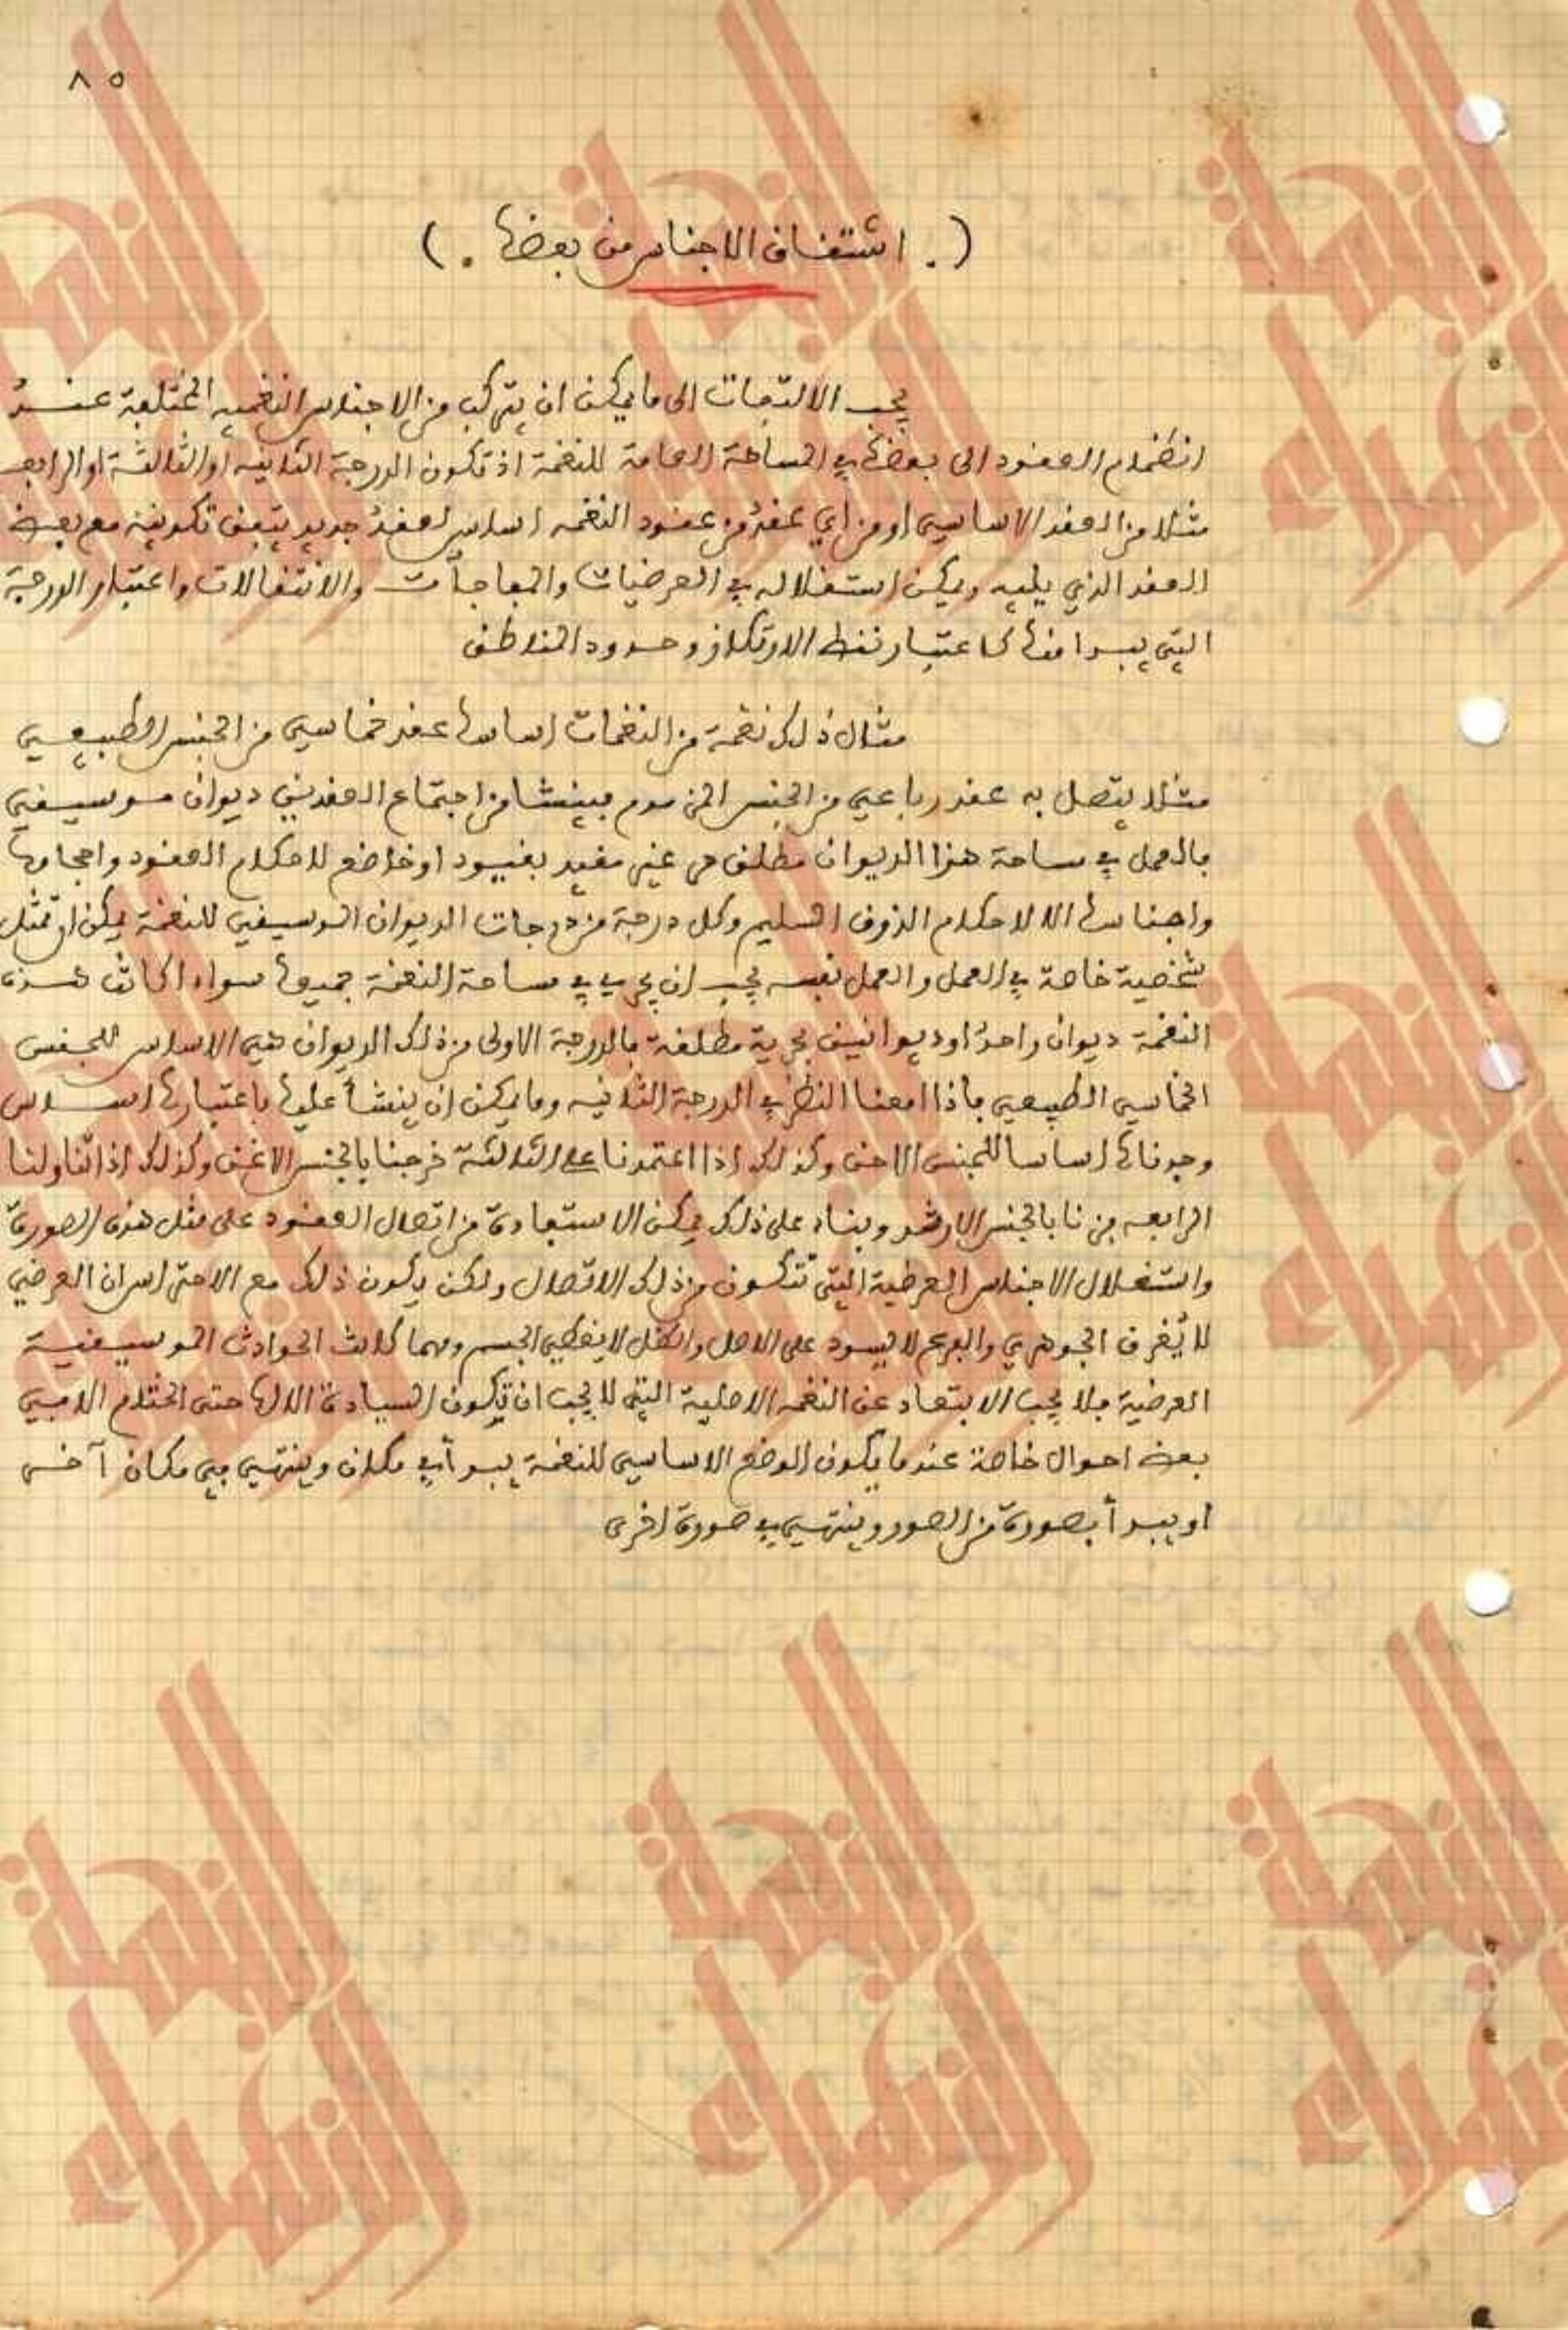 ٨٥
(. اشتقاق الاجناس من بعضها .)
يجب الالتفات الى ما يمكن ان يتركب من الاجناس النغمية المختلفة عند
انضمام العقود الى بعضها في المساحة العامة للنغمة اذ تكون الدرجة الثانية او الثالثة او الرابعة
مثلا من العقد الاساسي او من اي عقد من عقود النغمه اساس لعقد جديد يتفق تكوينه مع بعض
العقد الذي يليه ويمكن استغلاله في العرضيات والمفاجآت والانتقالات واعتبار الدرجة
التي يبدا منها كاعتبار نقط الارتكاز وحدود المناطق
مثال ذلك نغمة من النغمات اساسها عقد خماسي من الجنس الطبيعي
مثلا يتصل به عقد رباعي من الجنس المزموم فينشا من اجتماع العقدين ديوان موسيقي
فالعمل في مساحة هذا الديوان مطلق حر غير مقيد بقيود او خاضع لاحكام العقود واحجامها
واجناسها الا لاحكام الذوق السليم وكل درجة من درجات الديوان الموسيقي للنغمة يمكن ان تمثل
شخصية خاصة في العمل والعمل نفسه يجب ان يجري في مساحة النغمة جميعها سواء اكانت هذه
النغمة ديوان واحد او ديوانين بحرية مطلقة فالدرجة الاولى من ذلك الديوان هي الاساس للجنس
الخماسي الطبيعي فاذا امعنا النظر في الدرجة الثانيه وما يمكن ان ينشأ عليها باعتبارها اساس
وجدناها اساسا للجنس الاحق وكذلك اذا اعتمدنا على الثالثة خرجنا بالجنس الاغق وكذلك اذا تناولنا
الرابعه فزنا بالجنس الارشد وبناء على ذلك يمكن الاستفادة من اتصال العقود على مثل هذه الصورة
واستغلال الاجناس العرضية التي تتكون من ذلك الاتصال ولكن يكون ذلك مع الاحتراس ان العرضي
لا يغرق الجوهري والفرع لا يسود على الاصل والظل لا يغطي الجسم ومهما كانت الحوادث الموسيقية
العرضية فلا يجب الابتعاد عن النغمه الاصلية التي لا يجب ان تكون السيادة الا لها حتى الختام الا في
بعض احوال خاصة عندما يكون الوضع الاساسي للنغمة يبدأ في مكان وينتهي في مكان آخر
او يبدأ بصورة من الصور وينتهي في صورة اخرى